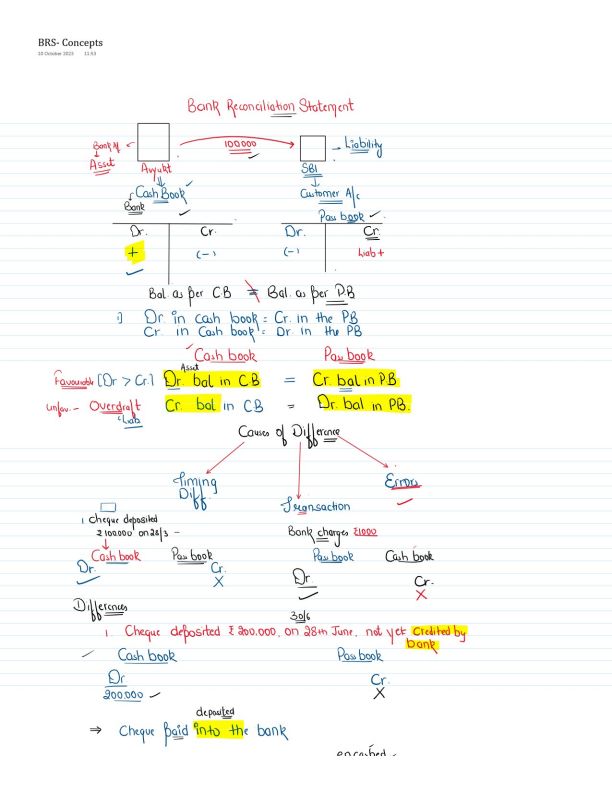 BRS- Concepts
10 October 2023 11:53
Bank Reconciliation Statement
Bank A/c 100000 Liability
Asset Avyukt SBI
Cash Book Customer A/c
Bank Pass book
Dr. Cr. Dr. Cr.
+ (-) (-) Liab +
Bal. as per C.B = Bal. as per P.B
1) Dr. in cash book = Cr. in the PB
Cr. in Cash book = Dr. in the PB
Cash book Pass book
Asset
Favourable [Dr > Cr.] Dr. bal in CB = Cr. bal in PB
unfav. - Overdraft Cr. bal in CB = Dr. bal in PB.
Liab
Causes of Difference
Timing Diff. Transaction Errors
1. Cheque deposited Bank charges ₹1000
₹100000 on 28/3 -
Cash book Pass book Pass book Cash book
Dr. Cr. Dr. Cr.
X X
Differences 30/6
1. Cheque deposited ₹ 200.000, on 28th June, not yet credited by
bank
Cash book Pass book
Dr. Cr.
200.000 X
deposited
⇒ Cheque paid into the bank
encashed